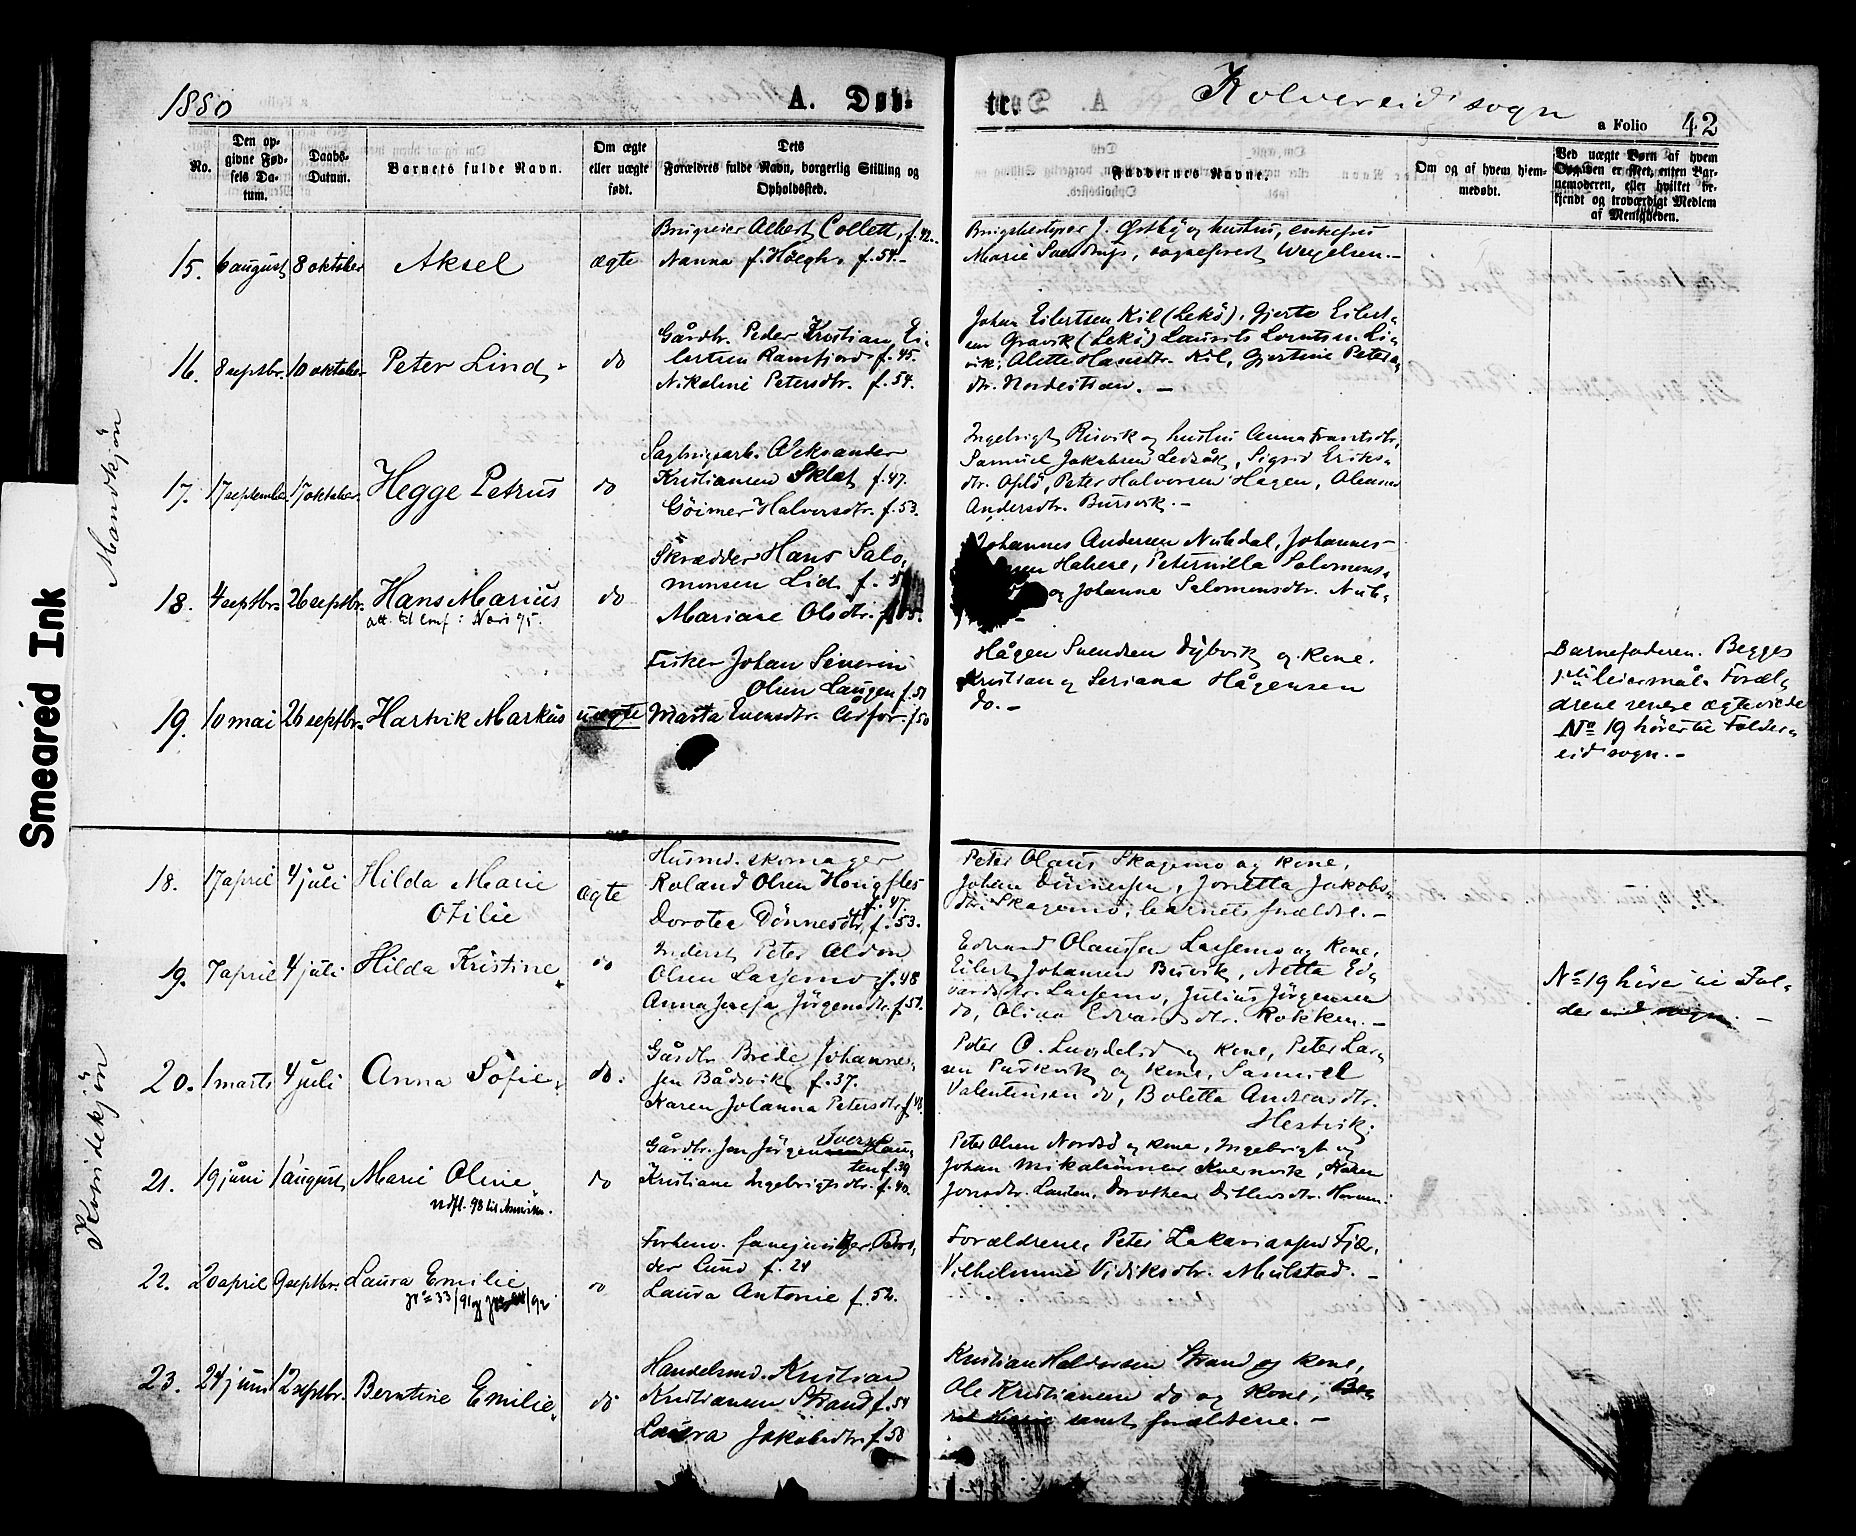 1880
A. Døb-
te.
Kolvereid sogn
a Folio 42
No.
Den op-
givne Fød-
sels Da-
tum.
Daabs-
Datum.
Barnets fulde Navn.
Om ægte
eller uægte
født.
Dets
Forældres fulde Navn, borgerlig Stilling og
Opholdssted.
Faddernes Navne.
Om og af hvem hjem-
medøbt.
Ved uægte Børn af hvem
Opgaven er sket, enten Bar-
nemoderen, eller hvilket be-
kjendt og troværdigt Medlem
af Menigheden.
Smeared Ink
Mandkjøn
15. 6 august 8 oktober Aksel ægte
Brugseier Albert Collett, f. 42.
Nanna f. Höegh f. 54.-
Brugsbestyrer J. Østby og hustru, enkefru
Marie Svendrup, sogneprest Wexelsen.-
16. 8 septbr. 10 oktober Peter Lind do
Gårdbr. Peder Kristian Ei-
lertsen Ramfjord f. 45.
Nikoline Petersdtr. f. 54.
Johan Eilertsen Kil (Lekö), Gjerte Eilert-
sen Gravik (Lekö) Laurits Lorntsen Li-
vik, Alette Hansdtr. Kil, Gjertine Peters-
dtr. -
17. 17 september 17 oktober Hegge Petrus do
Sagbrugsarb. Aleksander
Kristiansen Sklet f. 47.
Göimer Halvorsdtr. f. 53.
Ingebrigt Risvik og hustru Anna Frantsdtr,
Samuel Jakobsen, Sigrid Eriks-
dtr. Oplö, Peter Halvorsen Hagen,
Andersdtr. Bursvik.-
18. 4 septbr. 26 septbr. Hans Marius do
att. til conf: Novr 95.
Skrædder Hans Salo-
monsen Lid f.
Mariane Olsdtr. f. 55.
Johannes Andersen, Johannes
Petternilla Salomons-
og Johanna Salomonsdtr.
19. 10 mai 26 septbr. Hartvik Markus uægte
Fisker Johan Severin
Olsen Laugen f. 51
Marta Evensdtr. f. 50
Hågen Svendsen Dybvik og kone.
Kristian og Seriana Hågensen
do.-
Barnefaderen. Begges
leiermål. Foræl-
drene senere ægteviede
No 19 hörer til Folder-
eid sogn.-
Kvindekjøn
18. 17 april 4 juli Hilda Marie
Otilie ægte
Husmd. skomager
Roland Olsen Horigfles
f. 47.
Dorotea Dönnesdtr. f. 53.
Peter Olaus Skagemo og kone,
Johan Dönnesen, Jonetta Jakobs-
dtr. Skagemo, barnets forældre.-
19. 7 april 4 juli Hilda Kristine do
Inderst Peter Aldon
Olsen Lassemo f. 48
Anna Josefa Jörgensdtr. f. 51.
Edvard Olaussen Lassemo og kone,
Eilert Johansen Busvik, Netta Ed-
vardsdtr. Lassemo, Julius Jörgensen
do, Olina Edvardsdtr. Rokken.-
No 19 hörer til Fol-
dereid sogn.-
20. 1 marts 4 juli Anna Sofie do.
Gårdbr. Brede Johanne-
sen Bådsvik f. 37.
Karen Johanna Petersdtr. f. 43.
Peter O. og kone, Peter Lar-
sen og kone, Samuel
Valentinsen do, Boletta Andreasdtr.
Hestvik.
21. 19 juni 1 august Marie Oline do
udfl. 98 til Amerika.
Gårdbr. Jon Jörgen Iversen Lau-
ten f. 39
Kristiane Ingebrigtsdtr. f. 40.
Peter Olsen og kone, Ingebrigt og
Johan Kvernvik, Karen
Jonsdtr. Lauten, Dorothea Ditlevsdtr.
22. 20 april 9 septbr. Laura Emilie do
Jr = 33/91 og /92
Forhenv. Peder
Lund f. 24
Laura Antonie f. 52.
Forældrene, Peter Zakariassen Fjær,
Vilhelmine Didriksdtr. Mulstad.-
23. 24 juni 12 septbr. Berntine Emilie do
Handelsmd. Kristian
Kristiansen Strand f. 54
Laura Jakobsdtr. f. 58
Kristian Haldorsen Strand og kone,
Ole Kristiansen do og kone,
samt forældrene.-